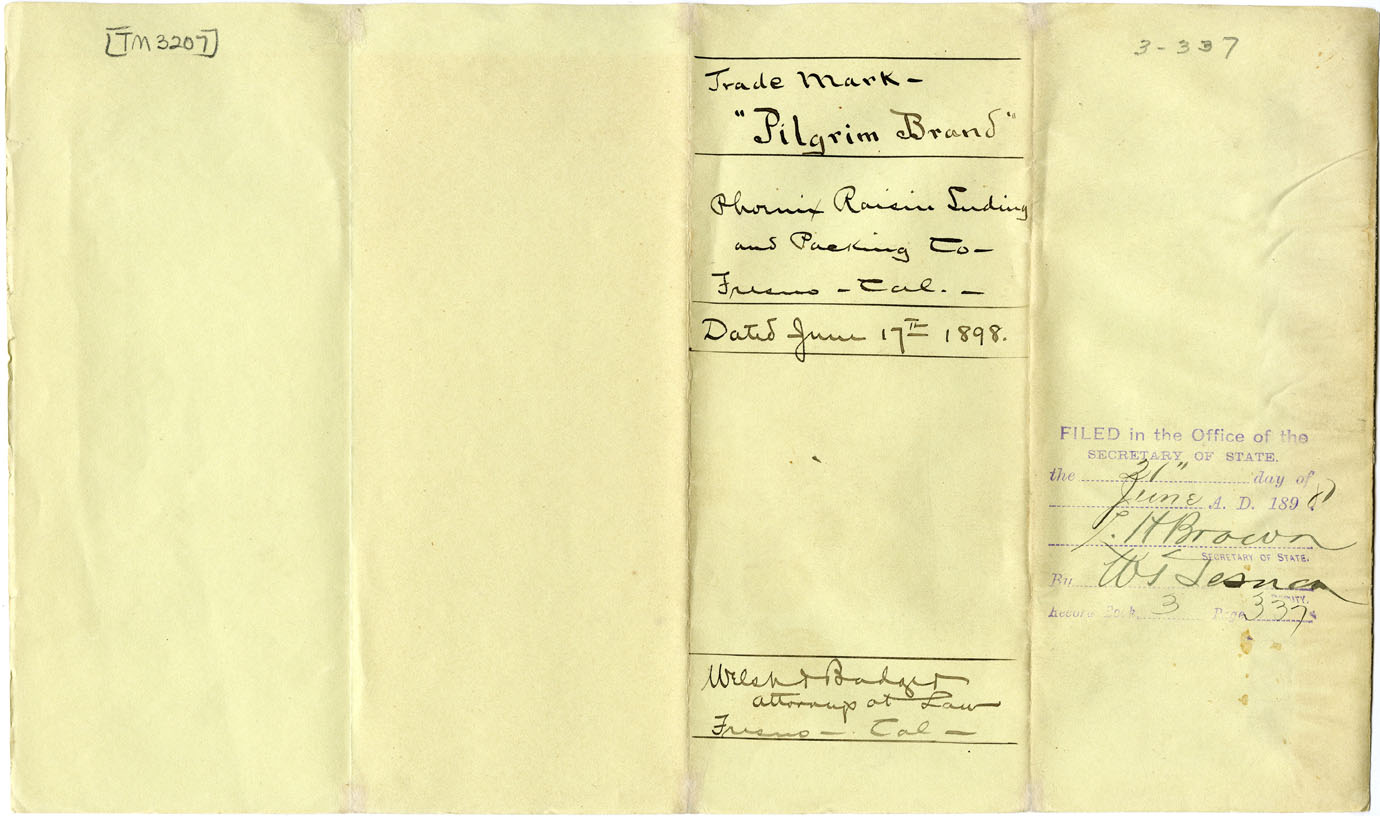 [TM 3207]
Trade Mark -
"Pilgrim Brand"
Phoenix Raisin Seeding
and Packing Co -
Fresno - Cal. -
Dated June 17th 1898.
Welsh &
Attorneys at Law
Fresno - Cal -
3-337
FILED in the Office of the
SECRETARY OF STATE.
the 21" day of
June A. D. 1898
L. H Brown
SECRETARY OF STATE.
By W T
DEPUTY.
Record Book 3 Page 337